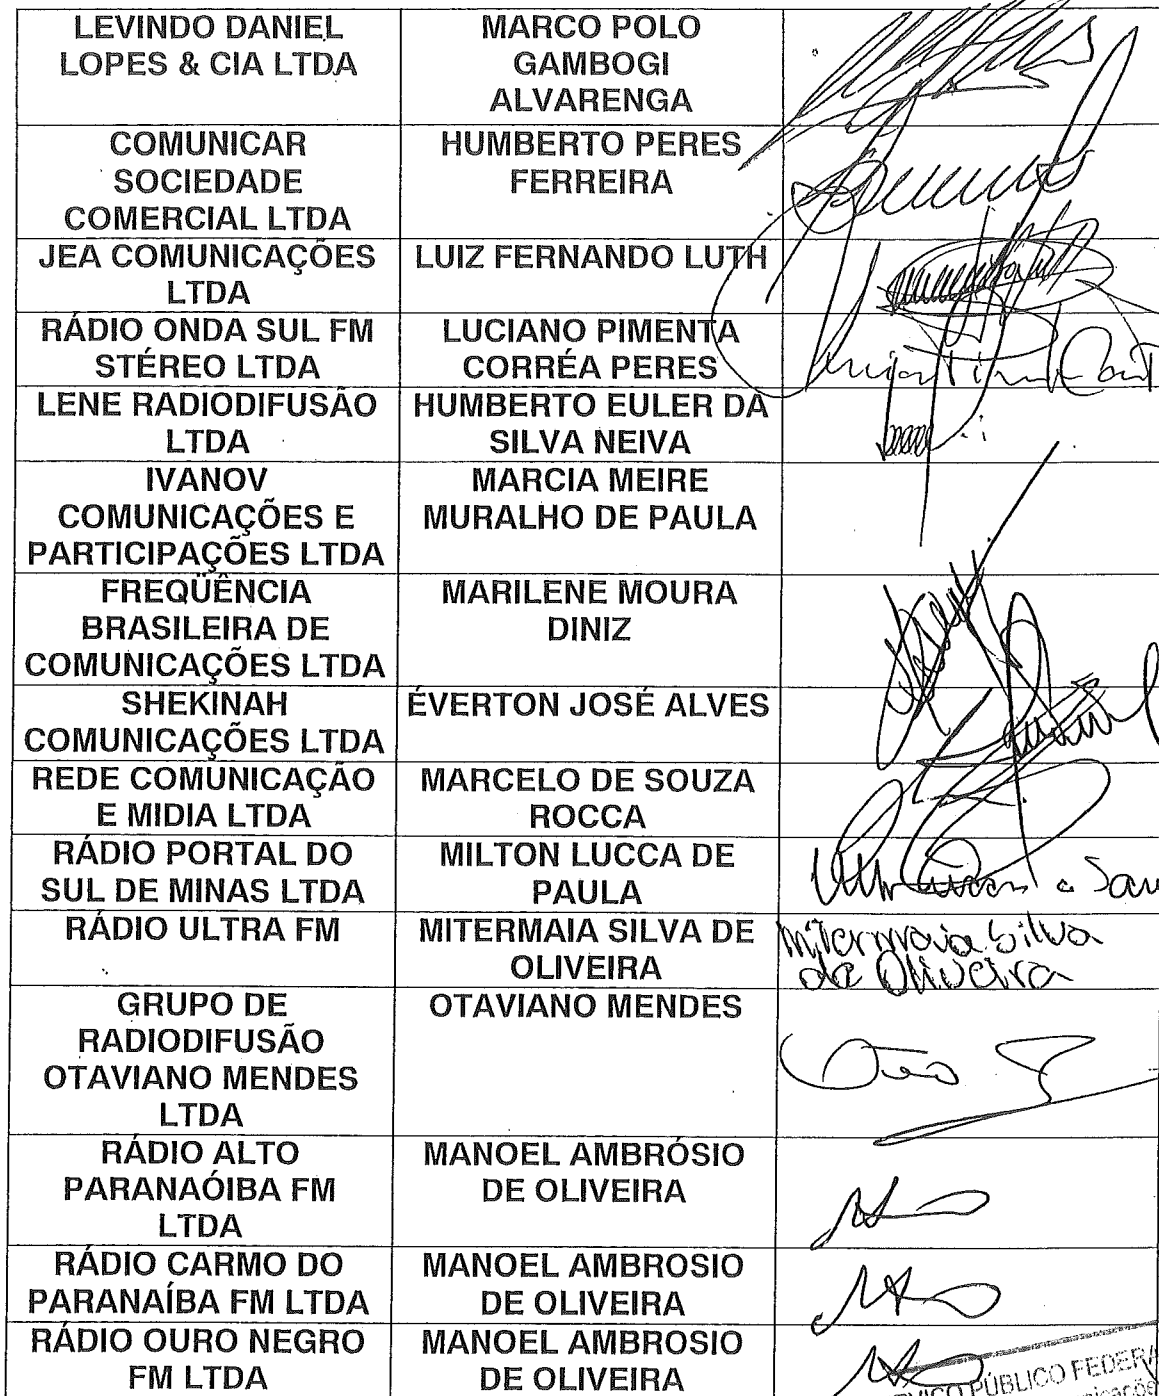 LEVINDO DANIEL
LOPES & CIA LTDA
MARCO POLO
GAMBOGI
ALVARENGA
COMUNICAR
SOCIEDADE
COMERCIAL LTDA
HUMBERTO PERES
FERREIRA
JEA COMUNICAÇÕES
LTDA
LUIZ FERNANDO LUTH
RÁDIO ONDA SUL FM
STÉREO LTDA
LUCIANO PIMENTA
CORRÉA PERES
LENE RADIODIFUSÃO
LTDA
HUMBERTO EULER DA
SILVA NEIVA
IVANOV
COMUNICAÇÕES E
PARTICIPAÇÕES LTDA
MARCIA MEIRE
MURALHO DE PAULA
FREQÜÊNCIA
BRASILEIRA DE
COMUNICAÇÕES LTDA
MARILENE MOURA
DINIZ
SHEKINAH
COMUNICAÇÕES LTDA
ÉVERTON JOSÉ ALVES
REDE COMUNICAÇÃO
E MIDIA LTDA
MARCELO DE SOUZA
ROCCA
RÁDIO PORTAL DO
SUL DE MINAS LTDA
MILTON LUCCA DE
PAULA
RÁDIO ULTRA FM
MITERMAIA SILVA DE
OLIVEIRA
Mitermaia Silva
de Oliveira
GRUPO DE
RADIODIFUSÃO
OTAVIANO MENDES
LTDA
OTAVIANO MENDES
RÁDIO ALTO
PARANAÓIBA FM
LTDA
MANOEL AMBRÓSIO
DE OLIVEIRA
RÁDIO CARMO DO
PARANAÍBA FM LTDA
MANOEL AMBROSIO
DE OLIVEIRA
RÁDIO OURO NEGRO
FM LTDA
MANOEL AMBROSIO
DE OLIVEIRA
PÚBLICO